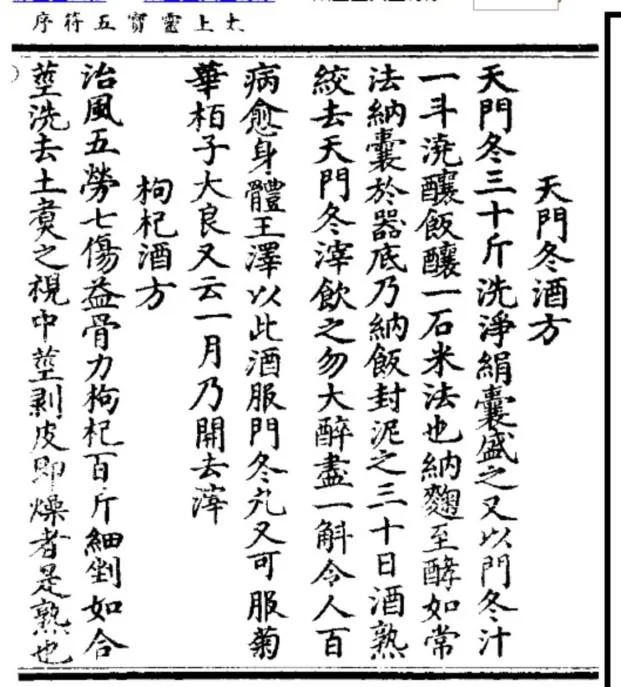 太上靈寳五符序
天門冬酒方
天門冬三十斤洗淨絹囊盛之又以門冬汁
一斗澆釀飯釀一石米法也納麴至酵如常
法納囊於器底乃納飯封泥之三十日酒熟
絞去天門冬滓飲之勿大醉盡一斛令人百
病愈身體王澤以此酒服門冬丸又可服菊
華栢子大良又云一月乃開去滓
枸杞酒方
治風五勞七傷益骨力枸杞百斤細剉如合
莖洗去土煑之視中莖剥皮即燥者是熟也